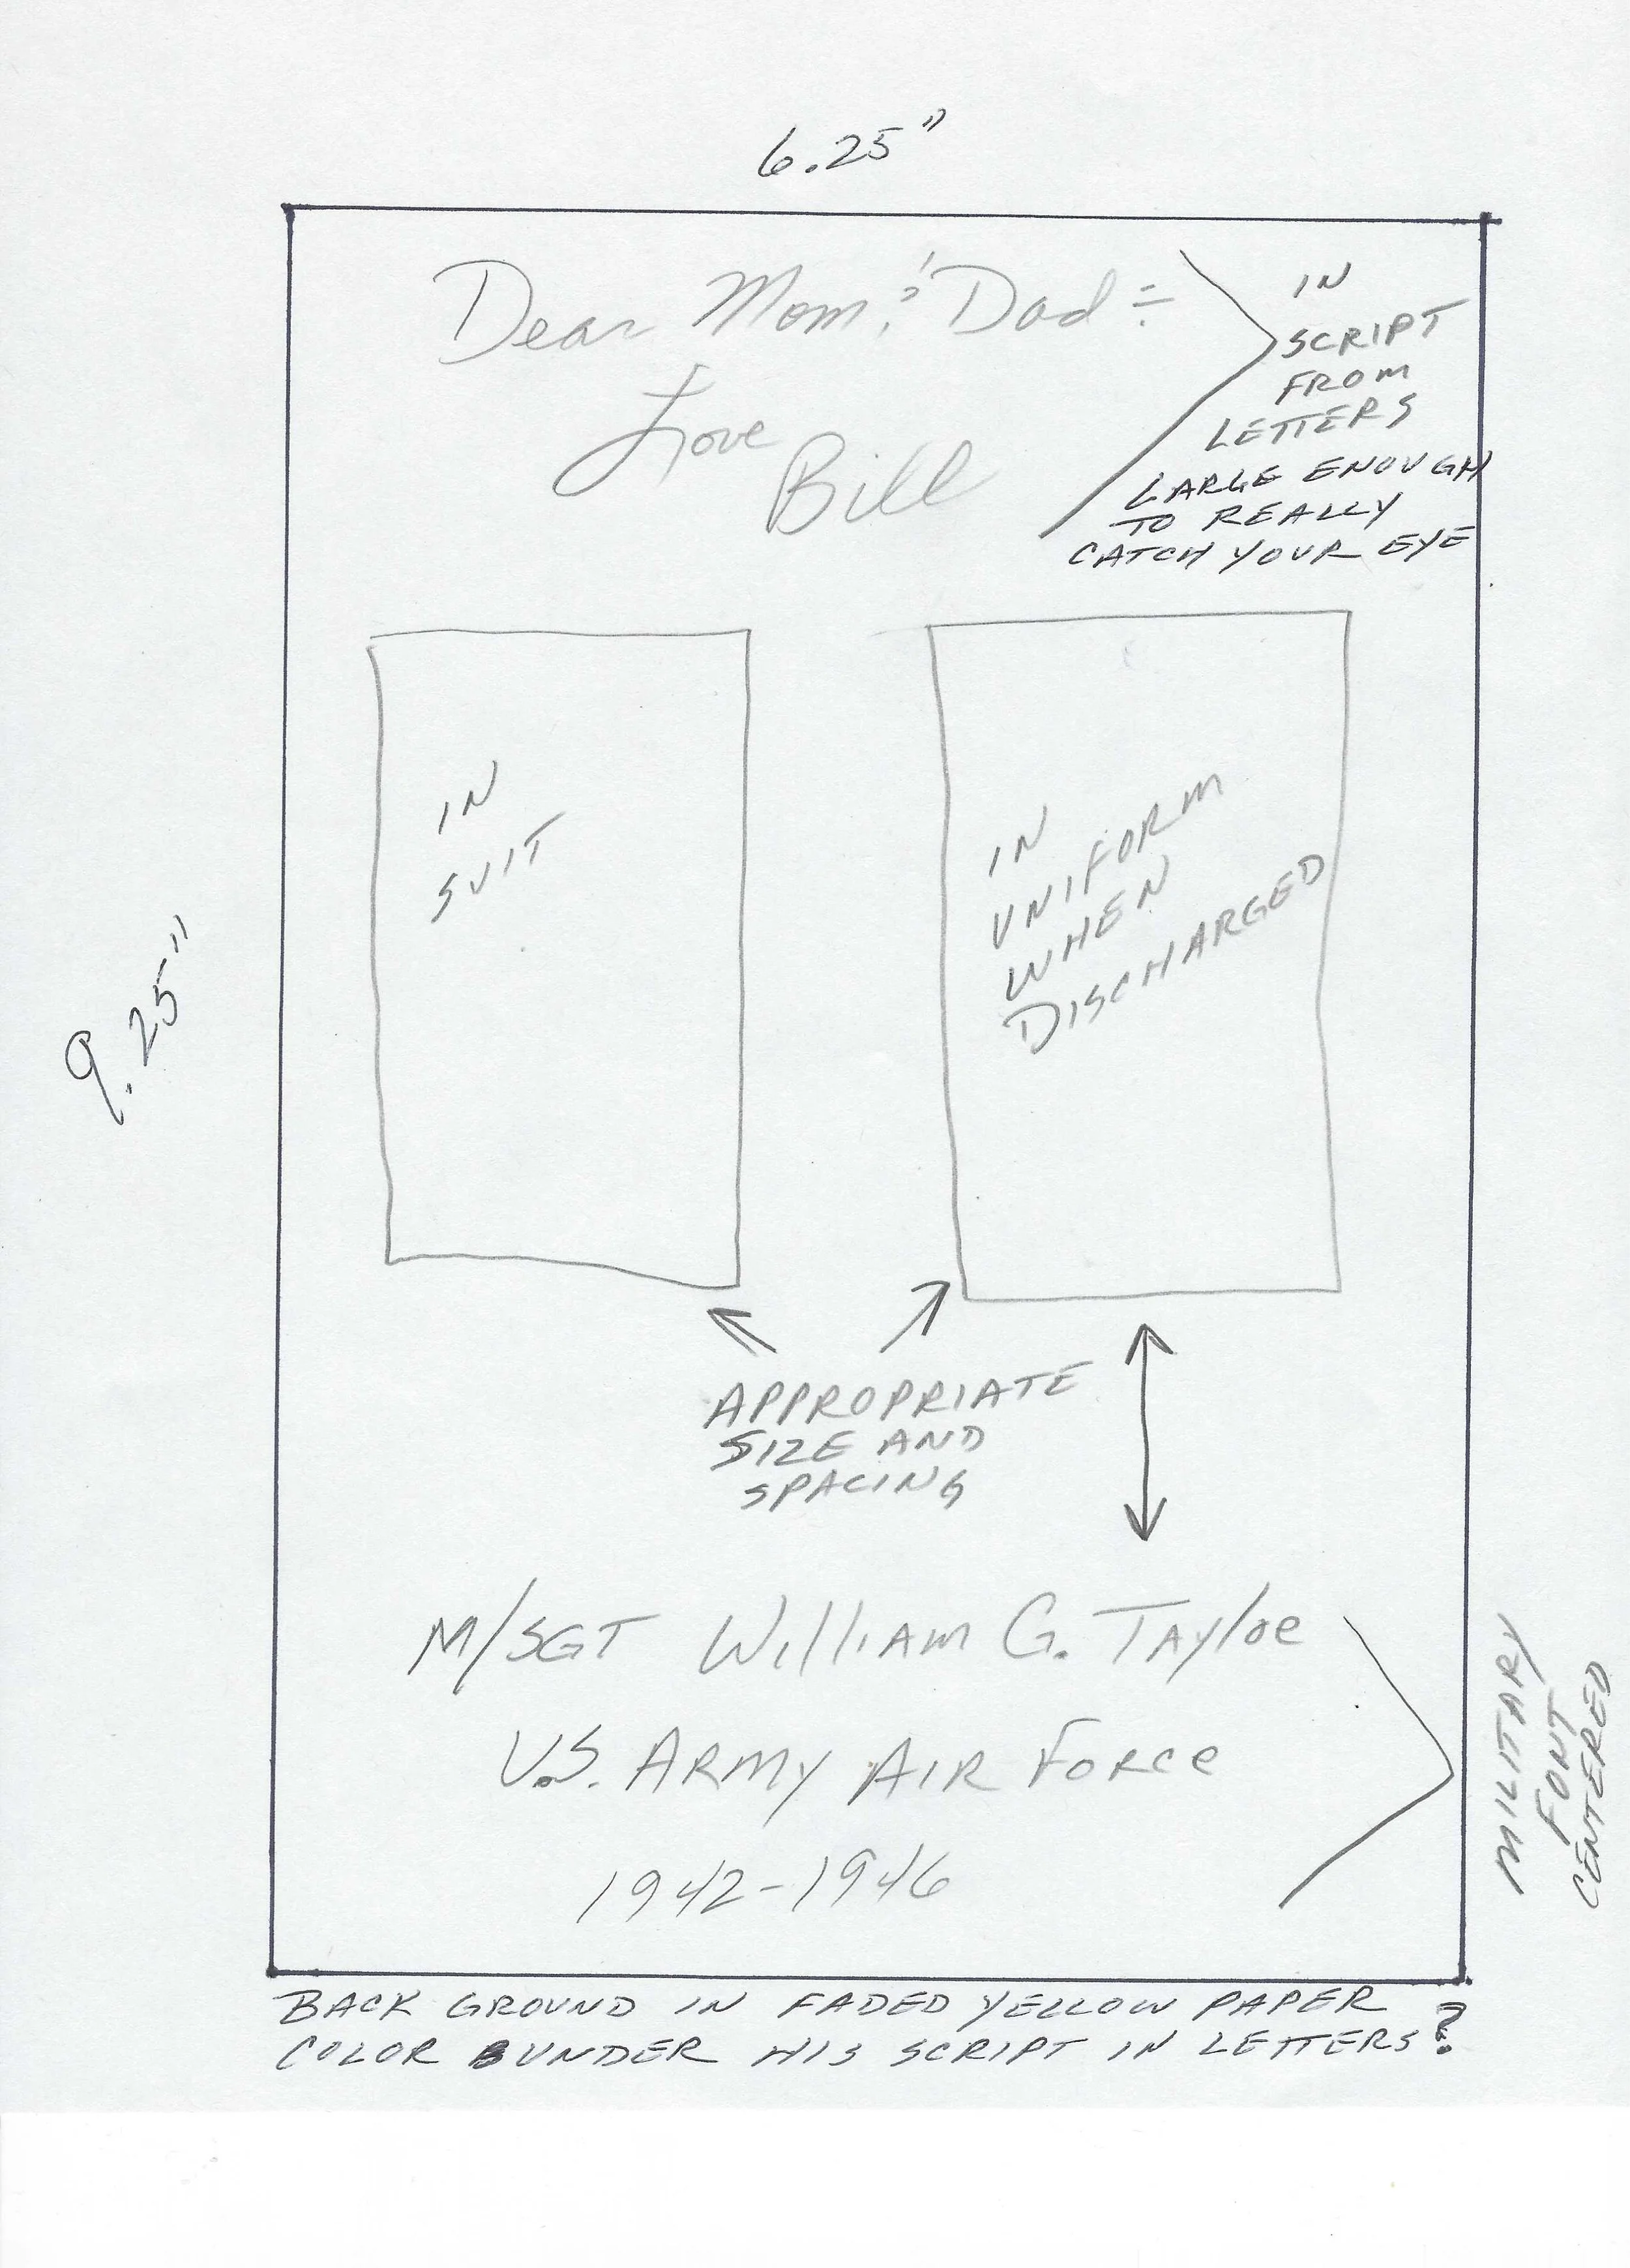 6.25"
Dear Mom & Dad :-
Love
Bill
IN
SCRIPT
FROM
LETTERS
LARGE ENOUGH
TO REALLY
CATCH YOUR EYE
IN
SUIT
IN
UNIFORM
WHEN
DISCHARGED
9.25"
APPROPRIATE
SIZE AND
SPACING
M/SGT William G. Tayloe
U.S. ARMY AIR FORCE
1942-1946
MILITARY
FONT
CENTERED
BACK GROUND IN FADED YELLOW PAPER
COLOR UNDER HIS SCRIPT IN LETTERS?